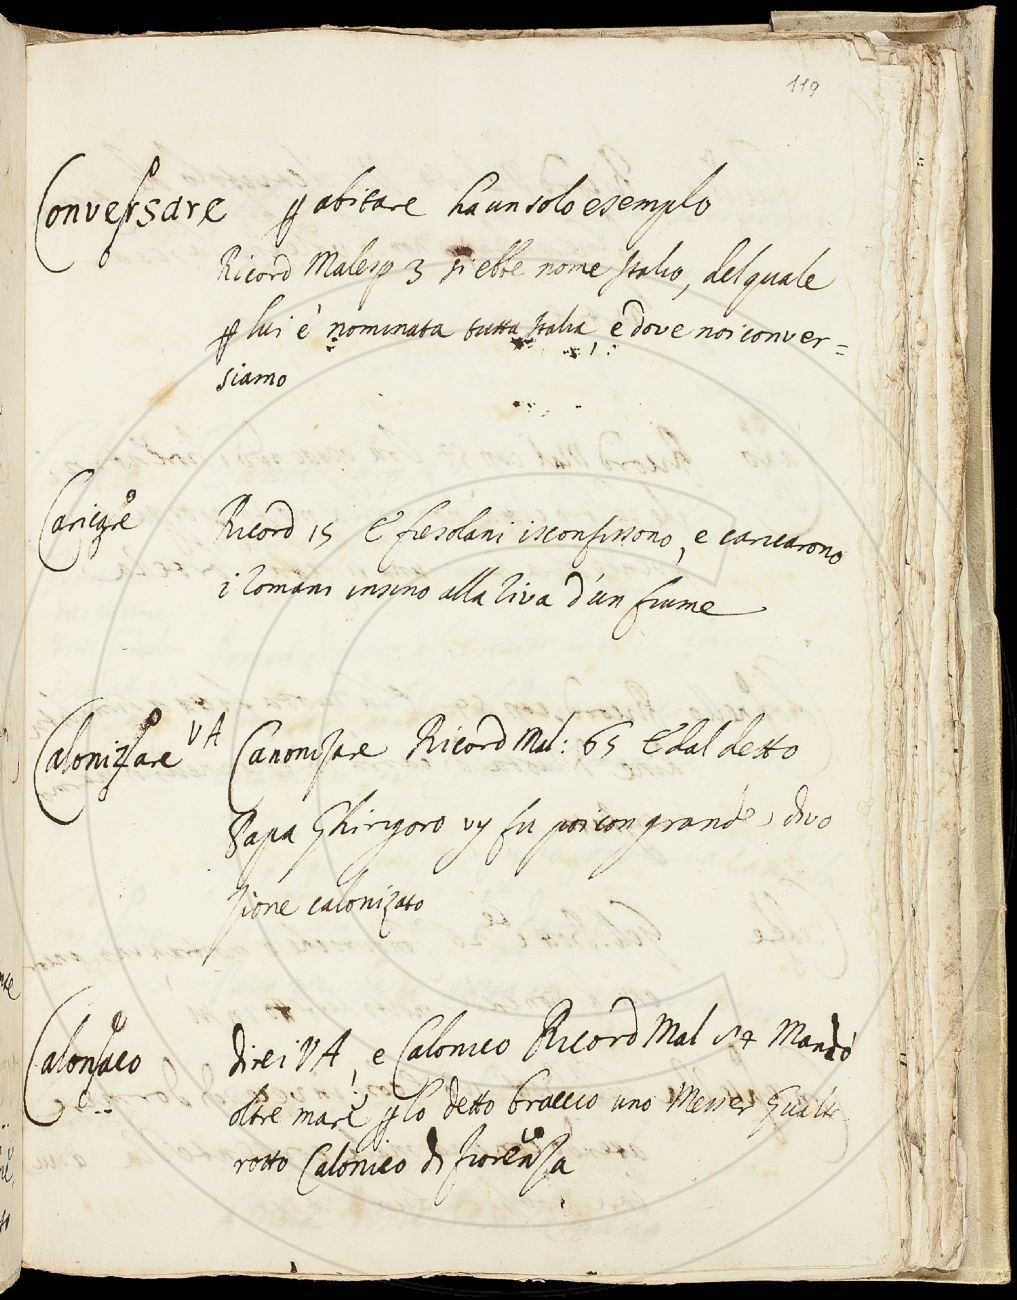 119
Conversare ꝑ abitare ha un solo esemplo
Ricord Malesp 3 si ebbe nome Italio, del quale
ꝑ lui è nominata tutta Italia, e dove noi conver=
siamo
Caricare Ricord 15 E' fiesolani isconfissono, e caricarono
i Romani insino alla riva d'un fiume
Calonizzare VA Canonizare Ricord Mal: 65 E dal detto
Papa Ghirigoro vij fu poi con grande divo
zione calonizato
Calonaco direi VA, e Calonico Ricord Mal 54 Mandò
oltre mare ꝑ lo detto braccio uno Messer
rotto Calonico di Fiorenza